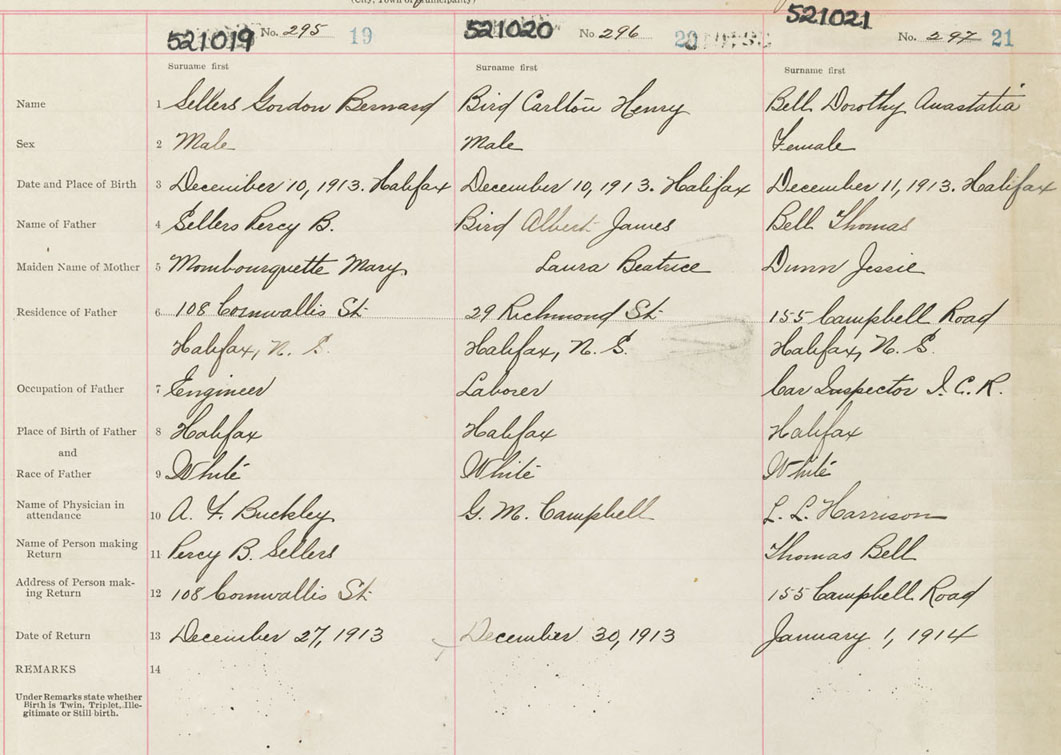 (City, Town or Municipality)
521019 No. 295 19 521020 No 296 20 521021 No. 297 21
Surname first Surname first Surname first
Name 1 Sellers Gordon Bernard Bird Carlton Henry Bell Dorothy Anastatia
Sex 2 Male Male Female
Date and Place of Birth 3 December 10, 1913. Halifax December 10, 1913. Halifax December 11, 1913. Halifax
Name of Father 4 Sellers Percy B. Bird Albert James Bell Thomas
Maiden Name of Mother 5 Mombourquette Mary Laura Beatrice Dunn Jessie
Residence of Father 6 108 Cornwallis St. 29 Richmond St. 155 Campbell Road
Halifax, N. S. Halifax, N. S. Halifax, N. S.
Occupation of Father 7 Engineer Laborer Car Inspector I. C. R.
Place of Birth of Father 8 Halifax Halifax Halifax
and
Race of Father 9 White White White
Name of Physician in
attendance 10 A. F. Buckley G. M. Campbell L. L. Harrison
Name of Person making
Return 11 Percy B. Sellers Thomas Bell
Address of Person mak-
ing Return 12 108 Cornwallis St. 155 Campbell Road
Date of Return 13 December 27, 1913 December 30, 1913 January 1, 1914
REMARKS 14
Under Remarks state whether
Birth is Twin, Triplet, Ille-
gitimate or Still birth.